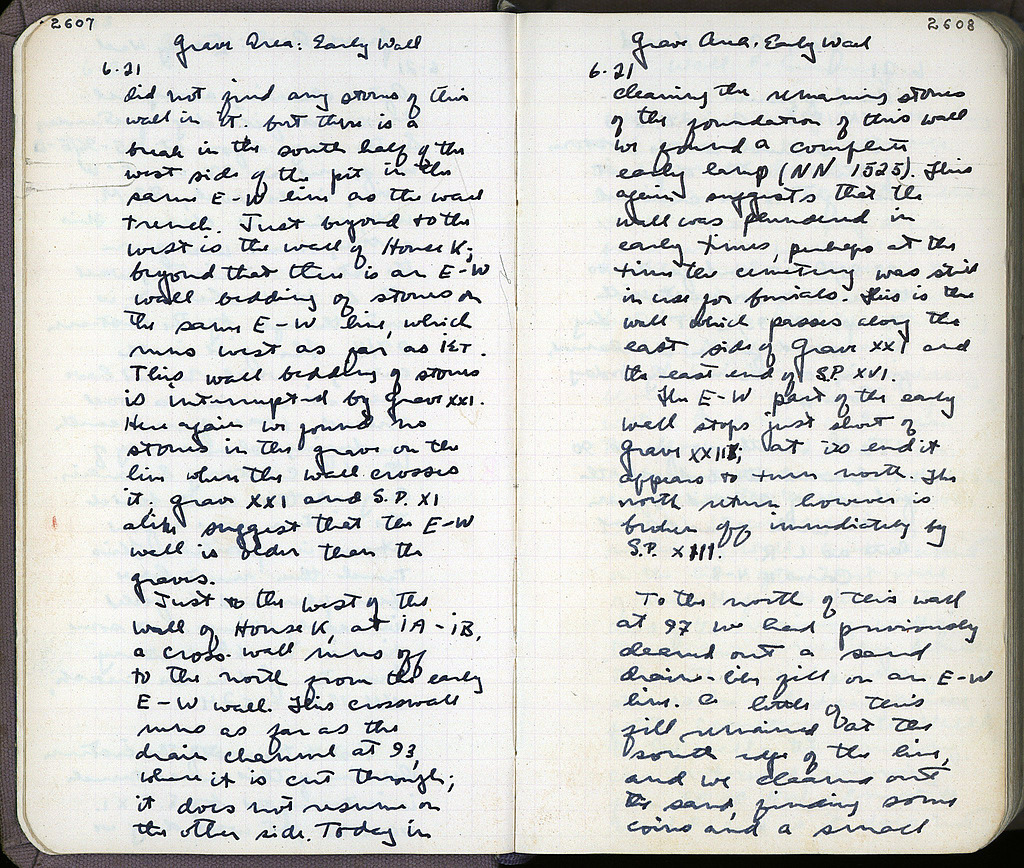 2607
Grave Area: Early Wall
6.21
did not find any stones of this
wall in it. but there is a
break in the south half of the
west side of the pit in the
same E-W line as the wall
trench. Just beyond to the
west is the wall of House K;
beyond that there is an E-W
wall bedding of stones on
the same E-W line, which
runs west as far as IET.
This wall bedding of stones
is interrupted by Grave XXI.
Here again we found no
stones in the grave on the
line where the wall crosses
it. Grave XXI and S.P. XI
alike suggest that the E-W
wall is older than the
graves.
Just to the west of the
wall of House K, at 1A-1B,
a cross-wall runs off
to the north from the early
E-W wall. This crosswall
runs as far as the
drain channel at 93,
where it is cut through;
it does not resume on
the other side. Today in
2608
Grave Area: Early Wall
6.21
cleaning the remaining stones
of the foundation of this wall
we found a complete
early lamp (NN 1525). This
again suggests that the
wall was plundered in
early times, perhaps at the
time the cemetery was still
in use for burials. This is the
wall which passes along the
east side of Grave XXI and
the east end of S.P. XVI.
The E-W part of the early
wall stops just short of
Grave XXIII; at its end it
appears to turn north. The
north return however is
broken off immediately by
S.P. XIII.
To the north of this wall
at 97 we had previously
cleared out a sand
drain-like fill on an E-W
line. A little of this
fill remained at the
south edge of the line,
and we cleaned out
the sand, finding some
coins and a small